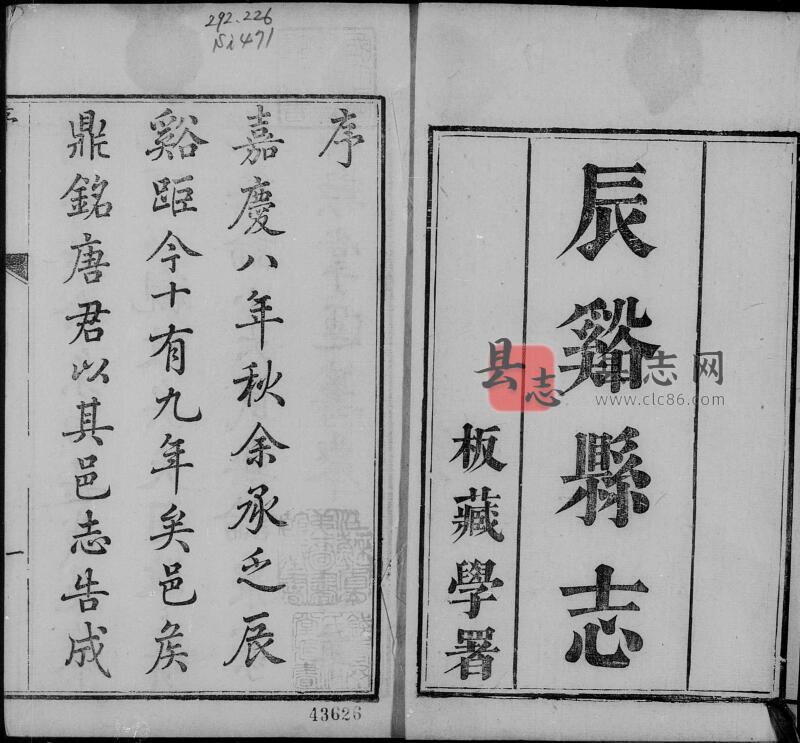 292.226
N2471
辰谿縣志
板藏學署
县志
志网
www.clc86.com
序
嘉慶八年秋余承乏辰
谿距今十有九年矣邑矦
鼎銘唐君以其邑志告成
一
43626